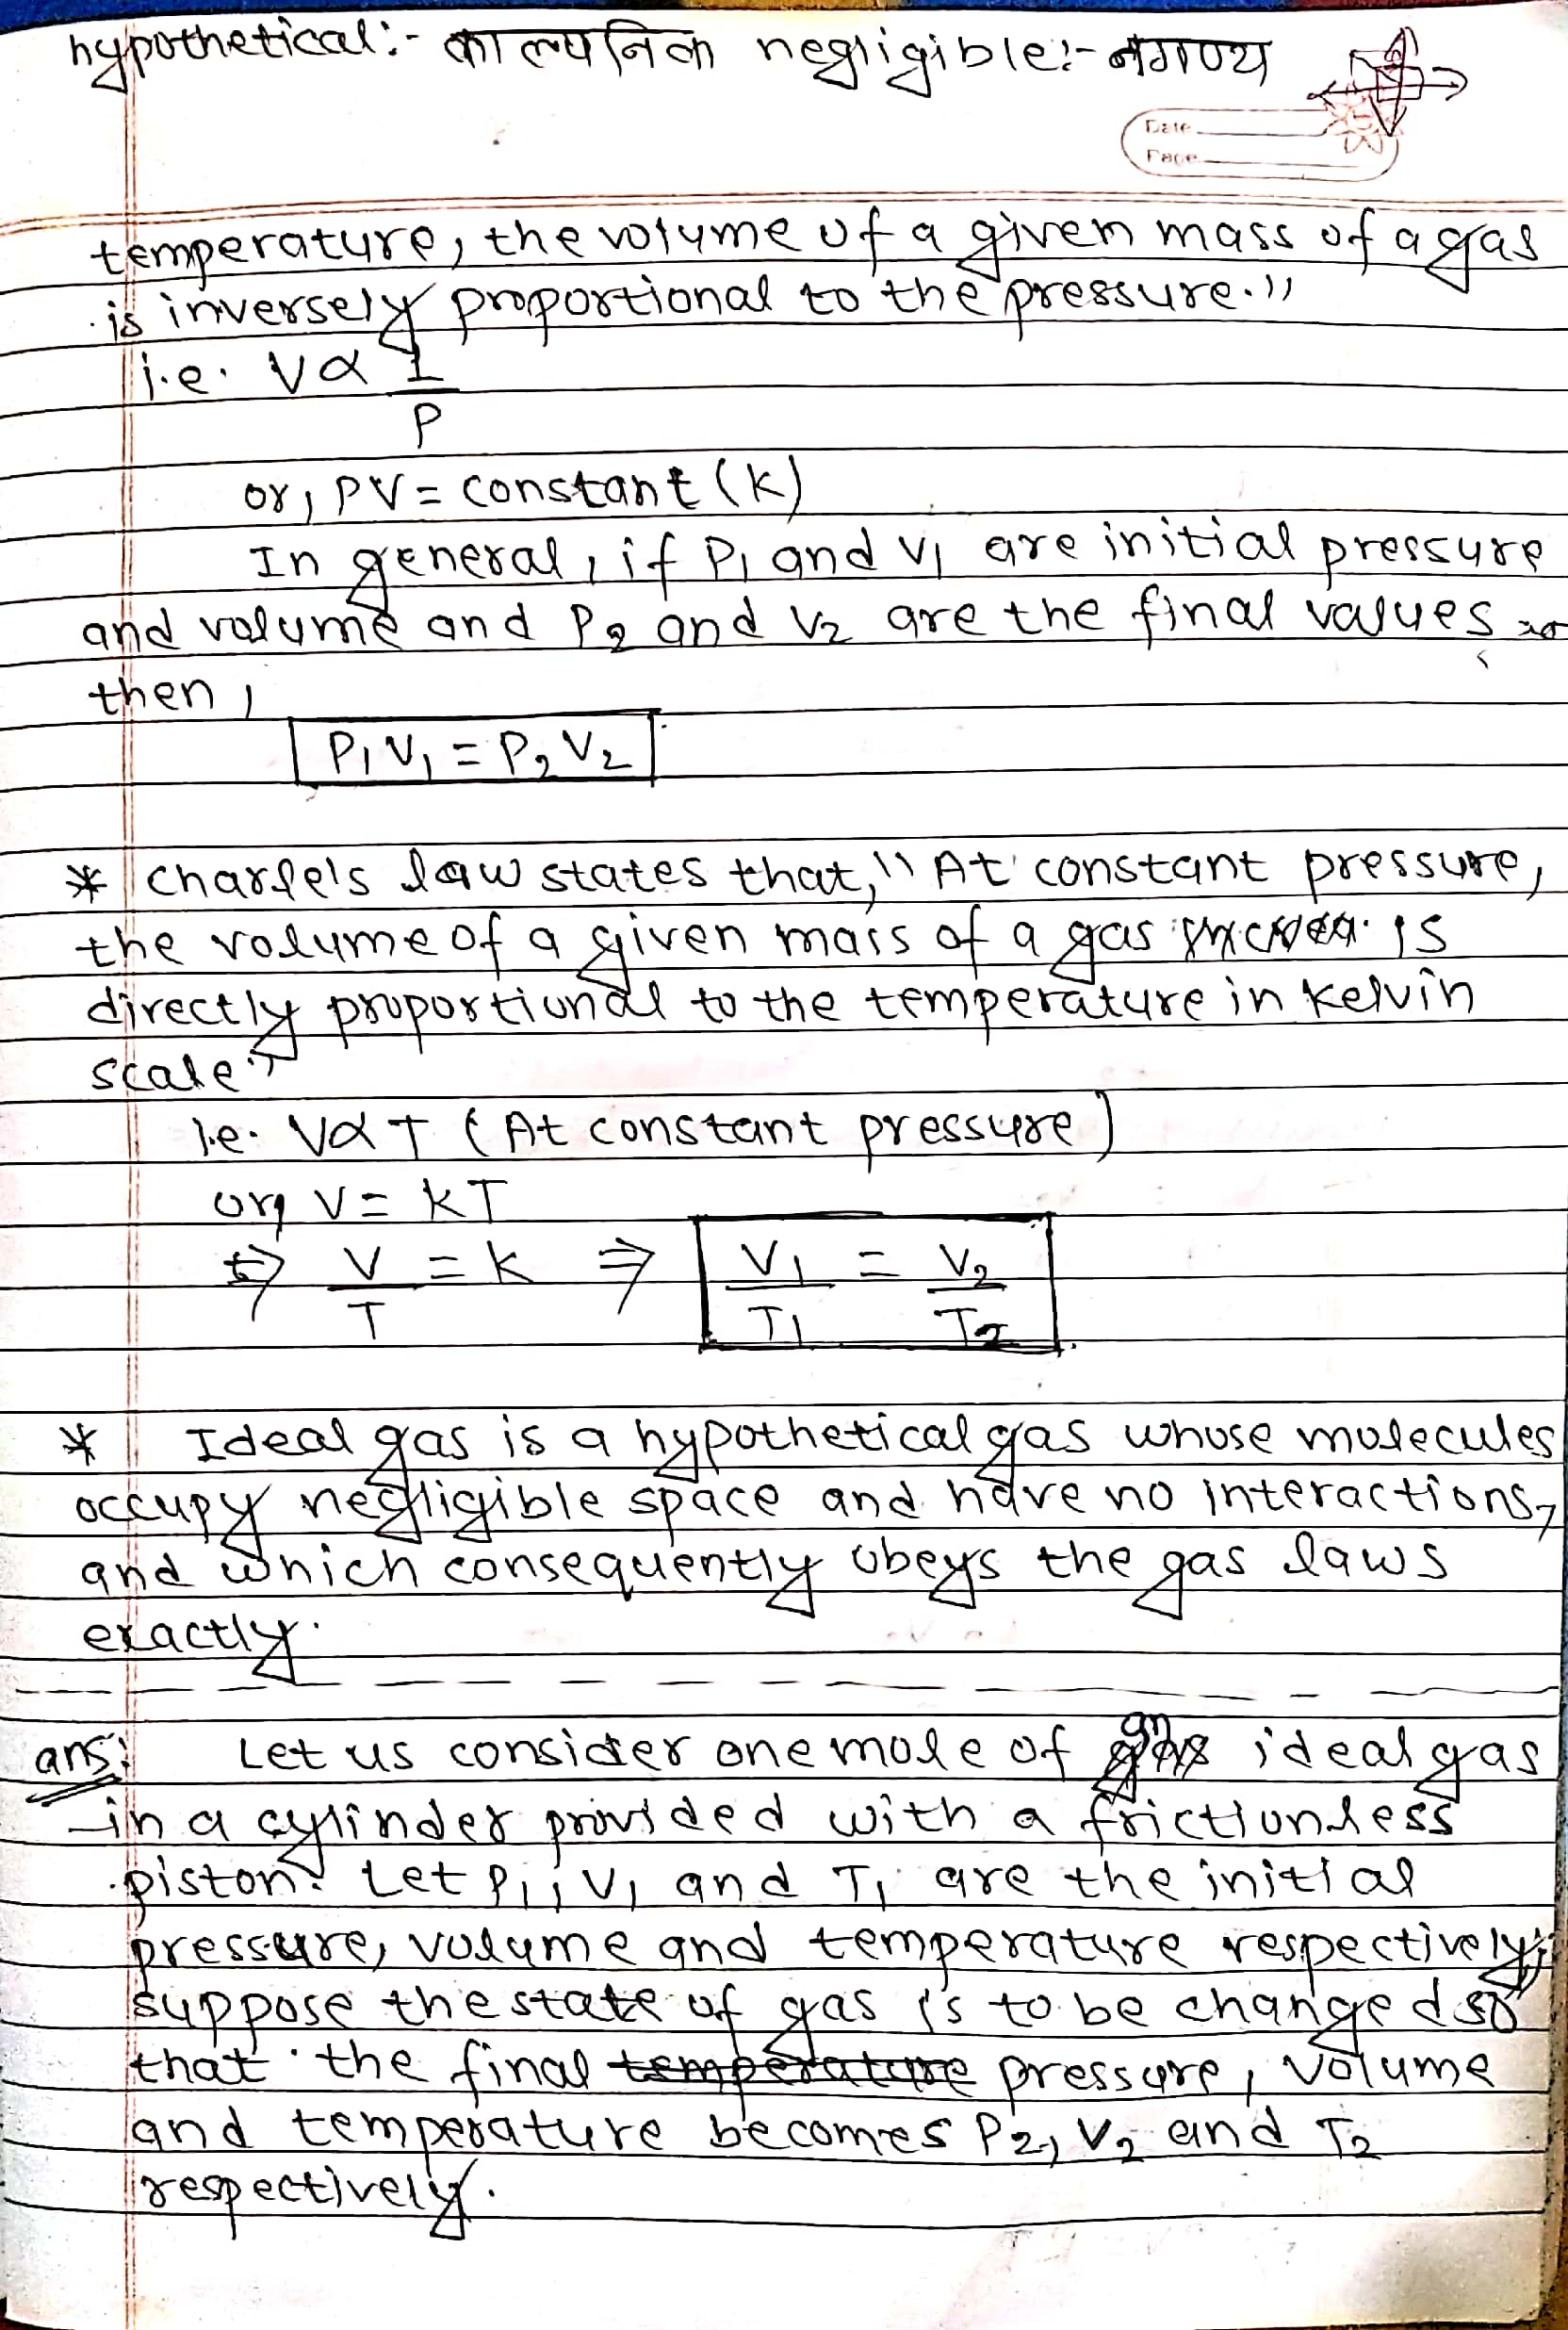 hypothetical:- काल्पनिक negligible:- नगण्य
Date
Page
temperature, the volume of a given mass of a gas
is inversely proportional to the pressure."
i.e. V α 1
P
or, PV = constant (k)
In general, if P₁ and V₁ are initial pressure
and volume and P₂ and V₂ are the final values
then,
P₁V₁ = P₂V₂
* Charle's law states that, "At constant pressure,
the volume of a given mass of a gas is
directly proportional to the temperature in kelvin
scale."
i.e. V α T (At constant pressure)
or, V = kT
⇒ V/T = k ⇒ V₁/T₁ = V₂/T₂
* Ideal gas is a hypothetical gas whose molecules
occupy negligible space and have no interactions,
and which consequently obeys the gas laws
exactly.
ans: Let us consider one mole of an ideal gas
in a cylinder provided with a frictionless
piston. Let P₁, V₁ and T₁ are the initial
pressure, volume and temperature respectively,
suppose the state of gas is to be changed so
that the final temperature pressure, volume
and temperature becomes P₂, V₂ and T₂
respectively.